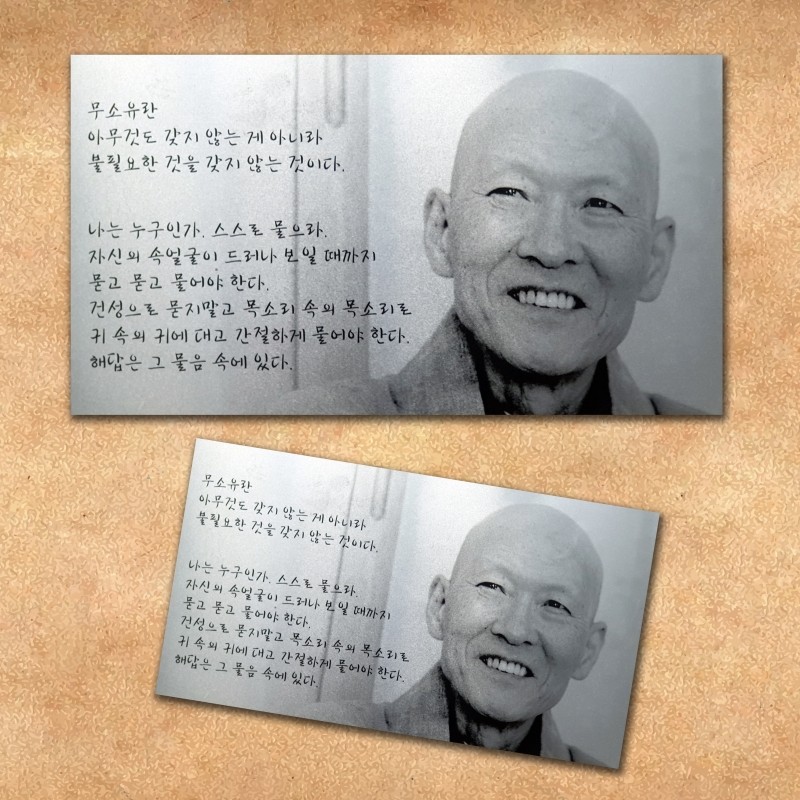 무소유란
아무것도 갖지 않는 게 아니라
불필요한 것을 갖지 않는 것이다.
나는 누구인가. 스스로 물으라.
자신의 속얼굴이 드러나 보일 때까지
묻고 묻고 물어야 한다.
건성으로 묻지말고 목소리 속의 목소리로
귀 속의 귀에 대고 간절하게 물어야 한다.
해답은 그 물음 속에 있다.
무소유란
아무것도 갖지 않는 게 아니라
불필요한 것을 갖지 않는 것이다.
나는 누구인가. 스스로 물으라.
자신의 속얼굴이 드러나 보일 때까지
묻고 묻고 물어야 한다.
건성으로 묻지말고 목소리 속의 목소리로
귀 속의 귀에 대고 간절하게 물어야 한다.
해답은 그 물음 속에 있다.